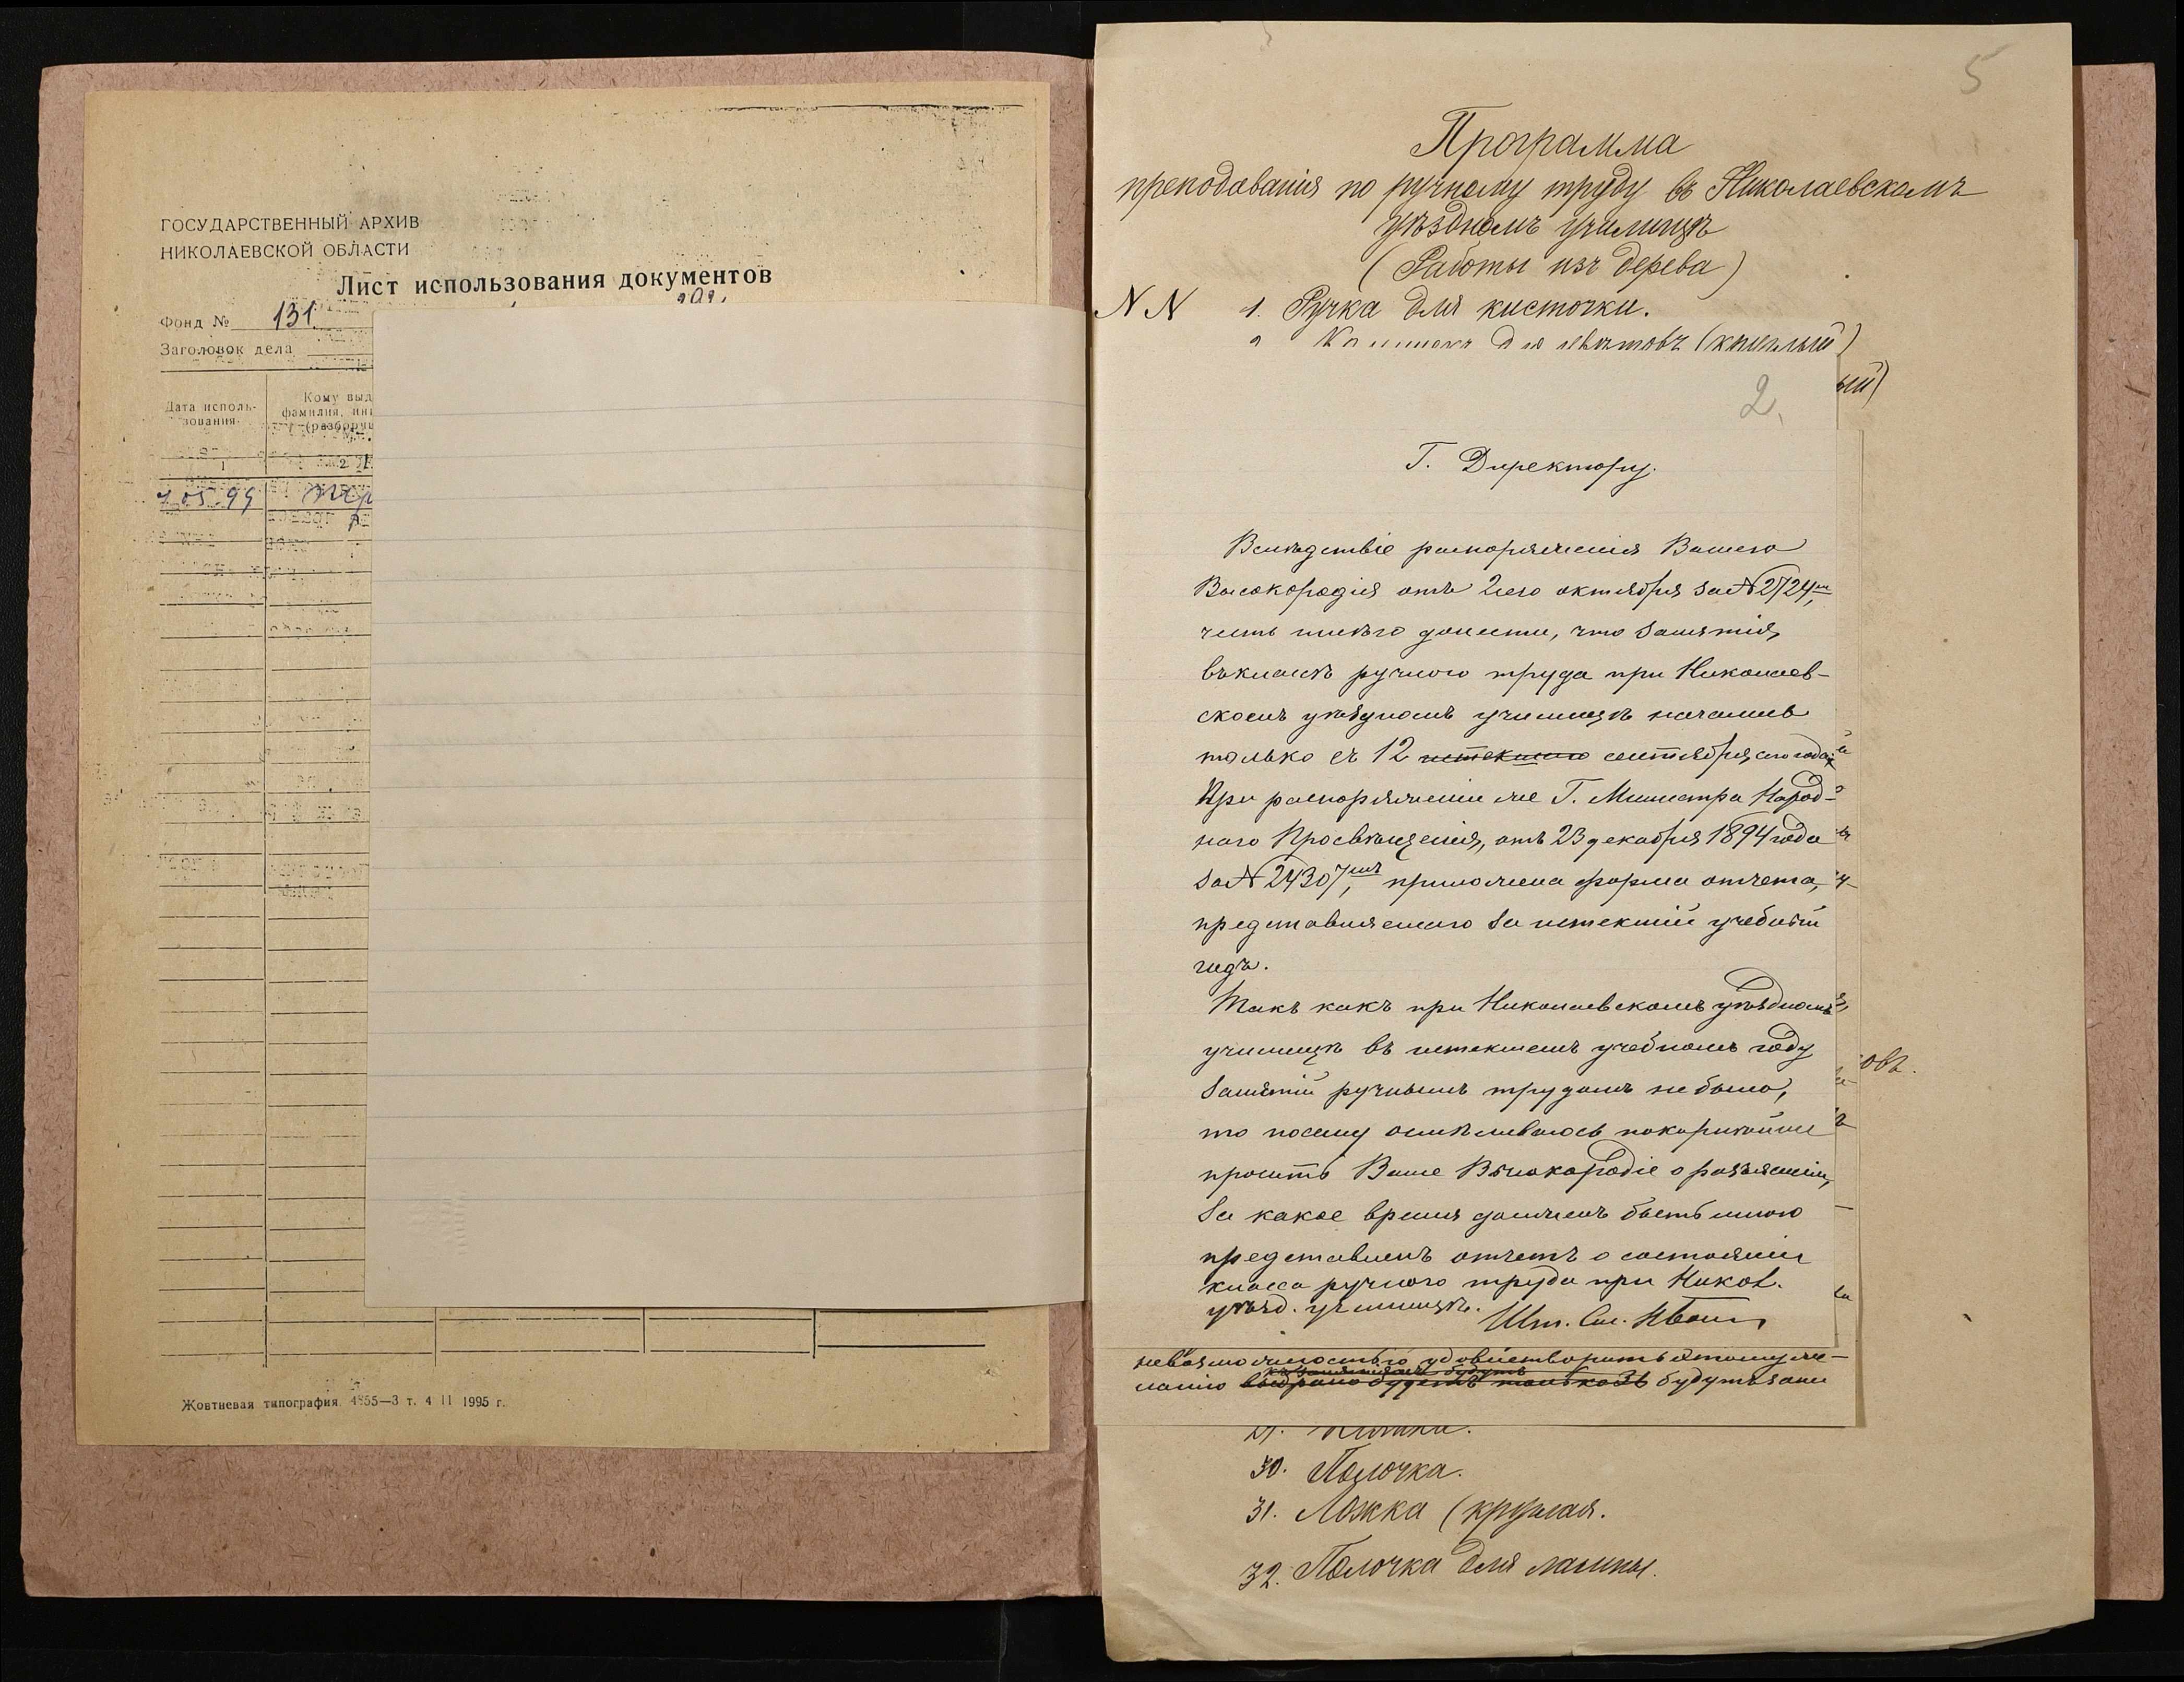 ГОСУДАРСТВЕННЫЙ АРХИВ
НИКОЛАЕВСКОЙ ОБЛАСТИ
Лист использования документов
Фонд № 131
Заголовок дела
Дата исполь-
зования
Кому выд
фамилия, ини
(разборчи
1
2
7.05.99
Жовтневая типография 4855—3 т. 4 II 1995 г.
5
Программа
преподаванія по ручному труду въ Николаевскомъ
уѣздномъ училищѣ
(Работы изъ дерева)
NN 1. Ручка для кисточки.
для цвѣтовъ (круглый)
ый)
2.
Г. Директору.
Вслѣдствіе распоряженія Вашего
Высокородія отъ 2го октября за №2724мъ,
честь имѣю донести, что занятія,
въ классѣ ручного труда при Николаев-
скомъ уѣздномъ училищѣ начались
только съ 12 истекшаго сентября, сего года.
При распоряженіи же Г. Министра Народ-
наго Просвѣщенія, отъ 23 декабря 1894 года
за № 24307мъ, приложена форма отчета,
представляемаго за истекшій учебный
годъ.
Такъ какъ при Николаевскомъ уѣздномъ
училищѣ въ истекшемъ учебномъ году
занятій ручнымъ трудомъ не было,
то посему осмѣливаюсь покорнѣйше
просить Ваше Высокородіе о разъясненіи,
за какое время долженъ быть мною
представленъ отчетъ о состояніи
класса ручного труда при Никол.
уѣзд. училищѣ.
Шт. См.
невозможностью удовлетворить этому же-
ланію будутъ
овъ.
30. Полочка.
31. Ложка (круглая.
32. Полочка для лампы.